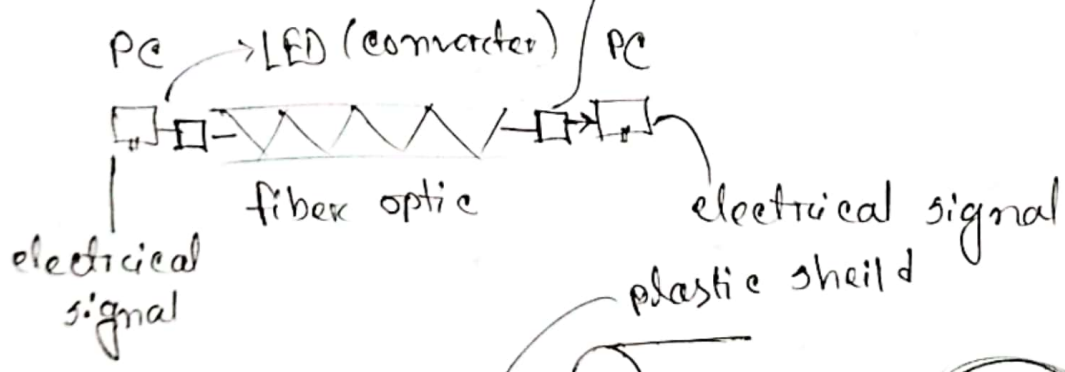 PC
LED (converter)
PC
fiber optic
electrical signal
electrical
signal
plastic sheild